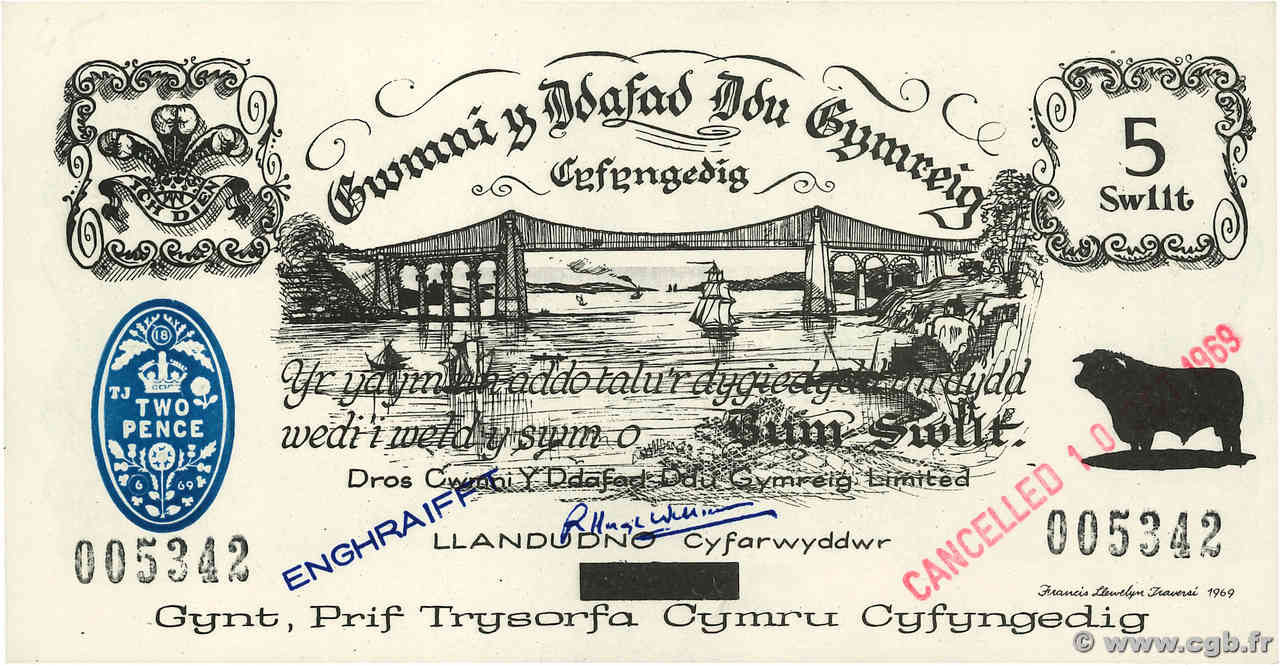 Cwmni y Ddafad Ddu Gymreig
Cyfyngedig
ICH DIEN
5
Swllt
18
TJ
TWO
PENCE
6 69
wedi i weld y swm o Pum Swllt.
Dros Cwmni Y Ddafad Ddu Gymreig Limited
ENGHRAIFFT
R Hugh Williams
LLANDUDNO Cyfarwyddwr
CANCELLED 10 1969
005342
005342
Francis Llewelyn Traversi 1969
Gynt, Prif Trysorfa Cymru Cyfyngedig
© www.cgb.fr